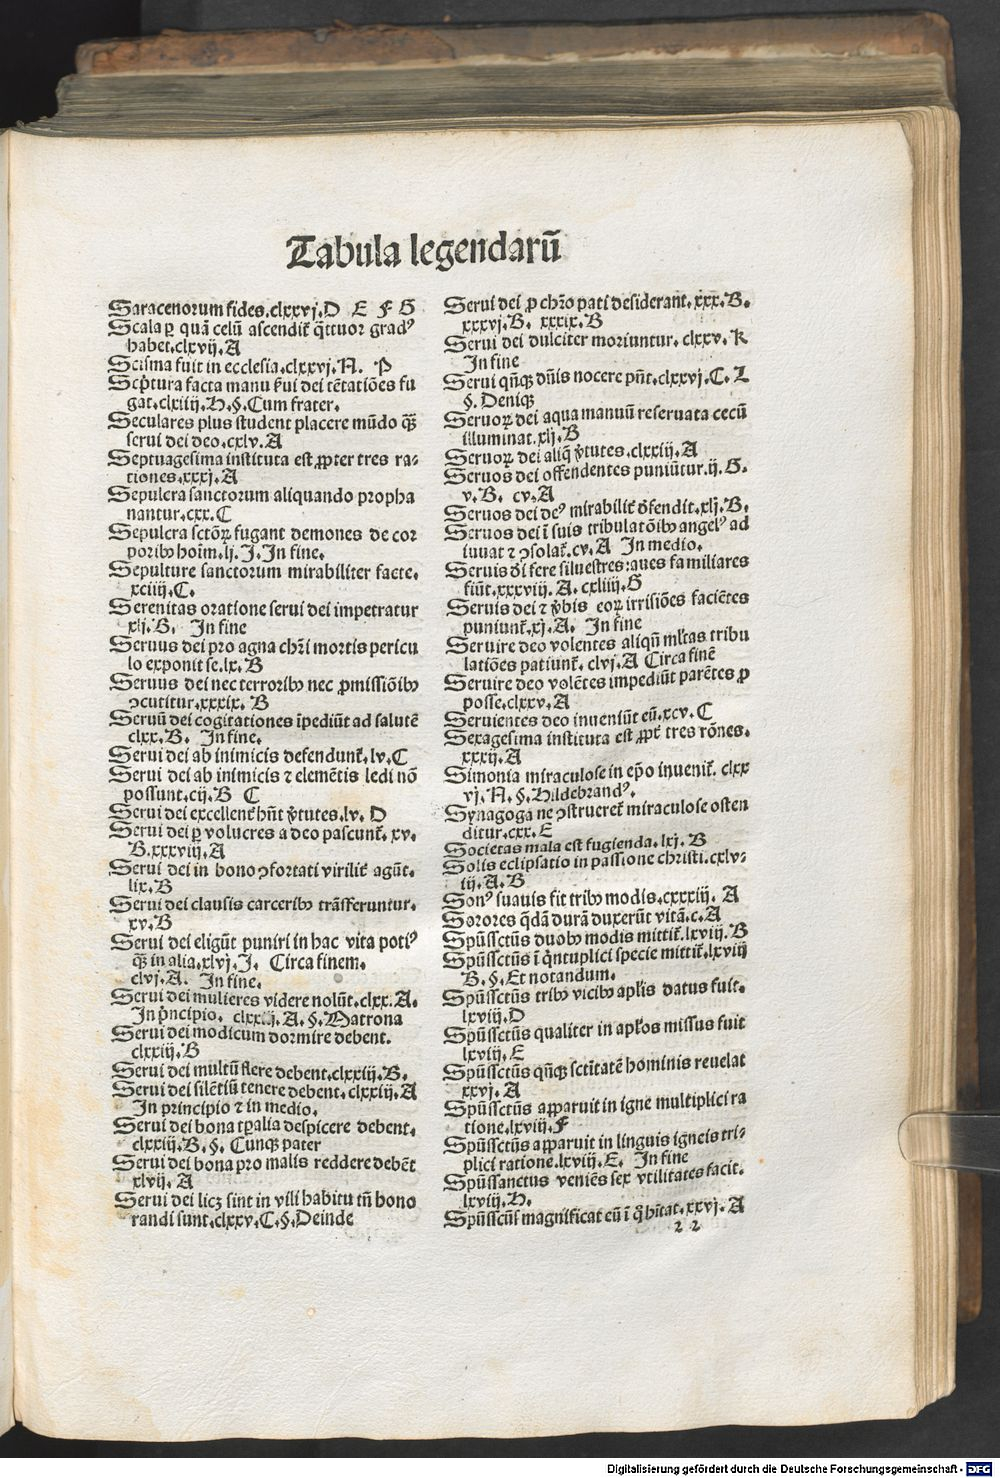 Tabula legendarū
Saracenorum fides.clxxvj.D E F G
Scala ꝑ quā celū ascendit̄ q̄ttuor gradꝰ
habet.clxvij.A
Scisma fuit in ecclesia.clxxvj.N. P
Scp̄tura facta manu s̄ui dei tētatiōes fu
gat.clxiiij.H.§.Cum frater.
Seculares plus student placere mūdo q̄ꝫ
serui dei deo.cxlv.A
Septuagesima instituta est ꝓpter tres ra⸗
tiones.xxxj.A
Sepulcra sanctorum aliquando propha
nantur.cxx.C
Sepulcra sctōꝝ fugant demones de cor
poribꝰ hoīm.lj.J.In fine.
Sepulture sanctorum mirabiliter facte.
xciiij.C.
Serenitas oratione serui dei impetratur
xlj.B. In fine
Seruus dei pro agna chr̄i mortis pericu
lo exponit se.lx.B
Seruus dei nec terroribꝰ nec ꝓmissiōibꝰ
ꝯcutitur.xxxix. B
Seruū dei cogitationes īpediūt ad salutē
clxx.B. In fine.
Serui dei ab inimicis defendunt̄.lv.C
Serui dei ab inimicis ⁊ elemētis ledi nō
possunt.cij.B C
Serui dei excellent̄ hn̄t v̄tutes.lv. D
Serui dei ꝑ volucres a deo pascunt̄. xv.
B.xxxviij.A
Serui dei in bono ꝯfortati virilit̄ agūt.
lix.B
Serui dei clausis carceribꝰ trāsferuntur.
xv.B
Serui dei eligūt puniri in hac vita potiꝰ
q̄ꝫ in alia.xlvj.J. Circa finem.
clvj.A. In fine.
Serui dei mulieres videre nolūt.clxx.A.
In p̄ncipio. A.§.Matrona
Serui dei modicum dormire debent.
clxxiij.B
Serui dei multū flere debent.clxxiij.B.
Serui dei silētiū tenere debent.clxxiij.A
In principio ⁊ in medio.
Serui dei bona tp̄alia despicere debent.
clxxiij.B.§. Cunqꝫ pater
Serui dei bona pro malis reddere debēt
xlvij. A
Serui dei licꝫ sint in vili habitu tn̄ hono
randi sunt.clxxv.C.§.Deinde
Serui dei ꝓ chr̄o pati desiderant.xxx.B.
xxxvj.B. xxxix.B
Serui dei dulciter moriuntur. clxxv.K
In fine
Serui qn̄qꝫ dn̄is nocere pn̄t.clxxvj.C.L
§. Deniqꝫ
Seruoꝝ dei aqua manuū reseruata cecū
illuminat.xlj.B
Seruoꝝ dei aliq̄ v̄tutes.clxxiij.A
Seruos dei offendentes puniūtur.ij.G.
v.B. cv.A
Seruos dei deꝰ mirabilit̄ d̄fendit.xlj.B.
Seruos dei ī suis tribulatōibꝰ angelꝰ ad
iuuat ⁊ ꝯsolat̄.cv.A In medio.
Seruis dī fere siluestres:aues familiares
fiūt.xxxviij.A. cxliiij.G
Seruis dei ⁊ v̄bis eoꝝ irrisiōes faciētes
puniunt̄.xj.A. In fine
Seruire deo volentes aliqn̄ ml̄tas tribu
latiōes patiunt̄. clvj.A Circa finē
Seruire deo volētes impediūt parētes ꝓ
posse.clxxv.A
Seruientes deo inueniūt eū.xcv.C
Sexagesima instituta est ꝓpt̄ tres rōnes.
xxxij.A
Simonia miraculose in ep̄o inuenit̄. clxx
vj.N.§.Hildebrandꝰ.
Synagoga ne ꝯstrueret̄ miraculose osten
ditur.cxx.E
Societas mala est fugienda.lxj.B
Solis eclipsatio in passione christi.cxlv⸗
iij.A.B
Sonꝰ suauis fit tribꝰ modis.cxxxiij. A
Sorores q̄dā durā duxerūt vitā.c.A
Spūssctūs duobꝰ modis mittit̄.lxviij.B
Spūssctūs ī q̄ntuplici specie mittit̄.lxviij
B.§.Et notandum.
Spūssctūs tribꝰ vicibꝰ apl̄is datus fuit.
lxviij.D
Spūssctūs qualiter in apl̄os missus fuit
lxviij.E
Spūssctūs qn̄qꝫ sctītatē hominis reuelat
xxvj.A
Spūssctūs apparuit in igne multiplici ra
tione.lxviij.F
Spūssctūs apparuit in linguis igneis tri⸗
plici ratione.lxviij.E. In fine
Spūssanctus veniēs sex vtilitates facit.
lxviij.H.
Spūsscūs magnificat eū ī q̄ hītat.xxvj.A
2 2
Digitalisierung gefördert durch die Deutsche Forschungsgemeinschaft - DFG